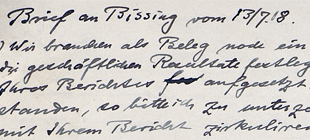 Brief an Bissing vom 13/7.18.
) Wir brauchen als Beleg noch ein
die geschäftlichen Resultate festleg
Ihres Berichtes aufgesetzt
standen, so bitte ich zu unterze
mit Ihrem Bericht zirkulieren